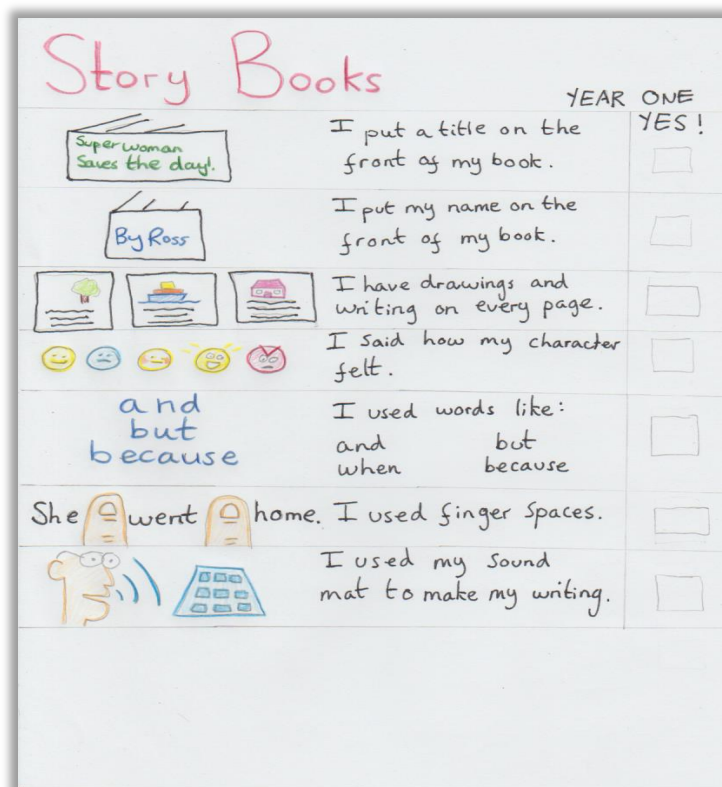 Story Books
YEAR ONE
YES!
Superwoman
Saves the day!.
I put a title on the
front of my book.
By Ross
I put my name on the
front of my book.
I have drawings and
writing on every page.
I said how my character
felt.
and
but
because
I used words like:
and but
when because
She went home.
I used finger spaces.
I used my sound
mat to make my writing.